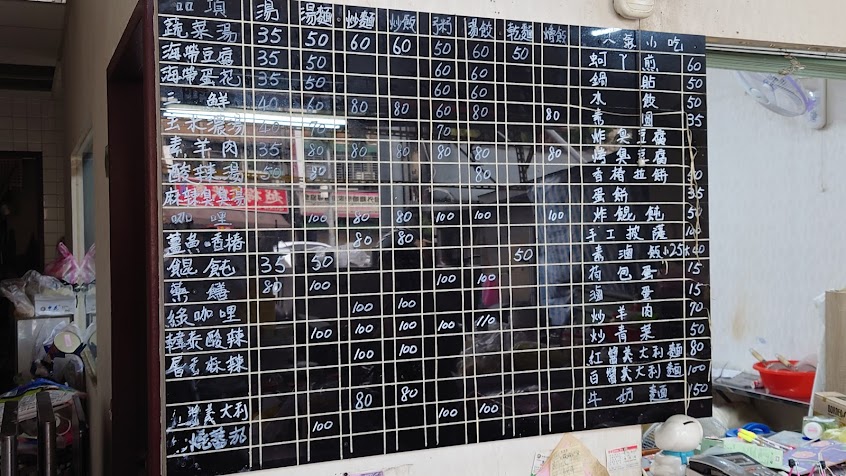 品項 湯 湯麵 炒麵 炒飯 粥 湯餃 乾麵 燴飯 人氣小吃
蔬菜湯 35 50 60 60 50 60 50
海帶豆腐 35 50 60 60
海帶蛋花 35 50 60 60
三鮮 40 60 80 80 60 80 80
玉米濃湯 40 70 70
素羊肉 35 80 80 80 80 80 80
酸辣湯 50 80
麻辣臭臭湯
咖哩 100 80 80 100 100 100
薑黃香椿 80 80
餛飩 35 50 50
藥膳 80 100 100 100
綠咖哩 100 100
韓泰酸辣 100 100 100 100 110
麻辣 100 100
醬義大利 80 80
燒番茄 100 100 100
蚵丫煎 60
鍋貼 50
水餃 50
素圓 35
炸臭豆腐
烤臭豆腐
香椿拉餅 50
蛋餅 35
炸餛飩 50
手工披薩 100
素滷飯 小25大40
荷包蛋 15
滷蛋 15
炒羊肉 70
炒青菜 50
紅醬義大利麵 80
白醬義大利麵 100
牛奶麵 150